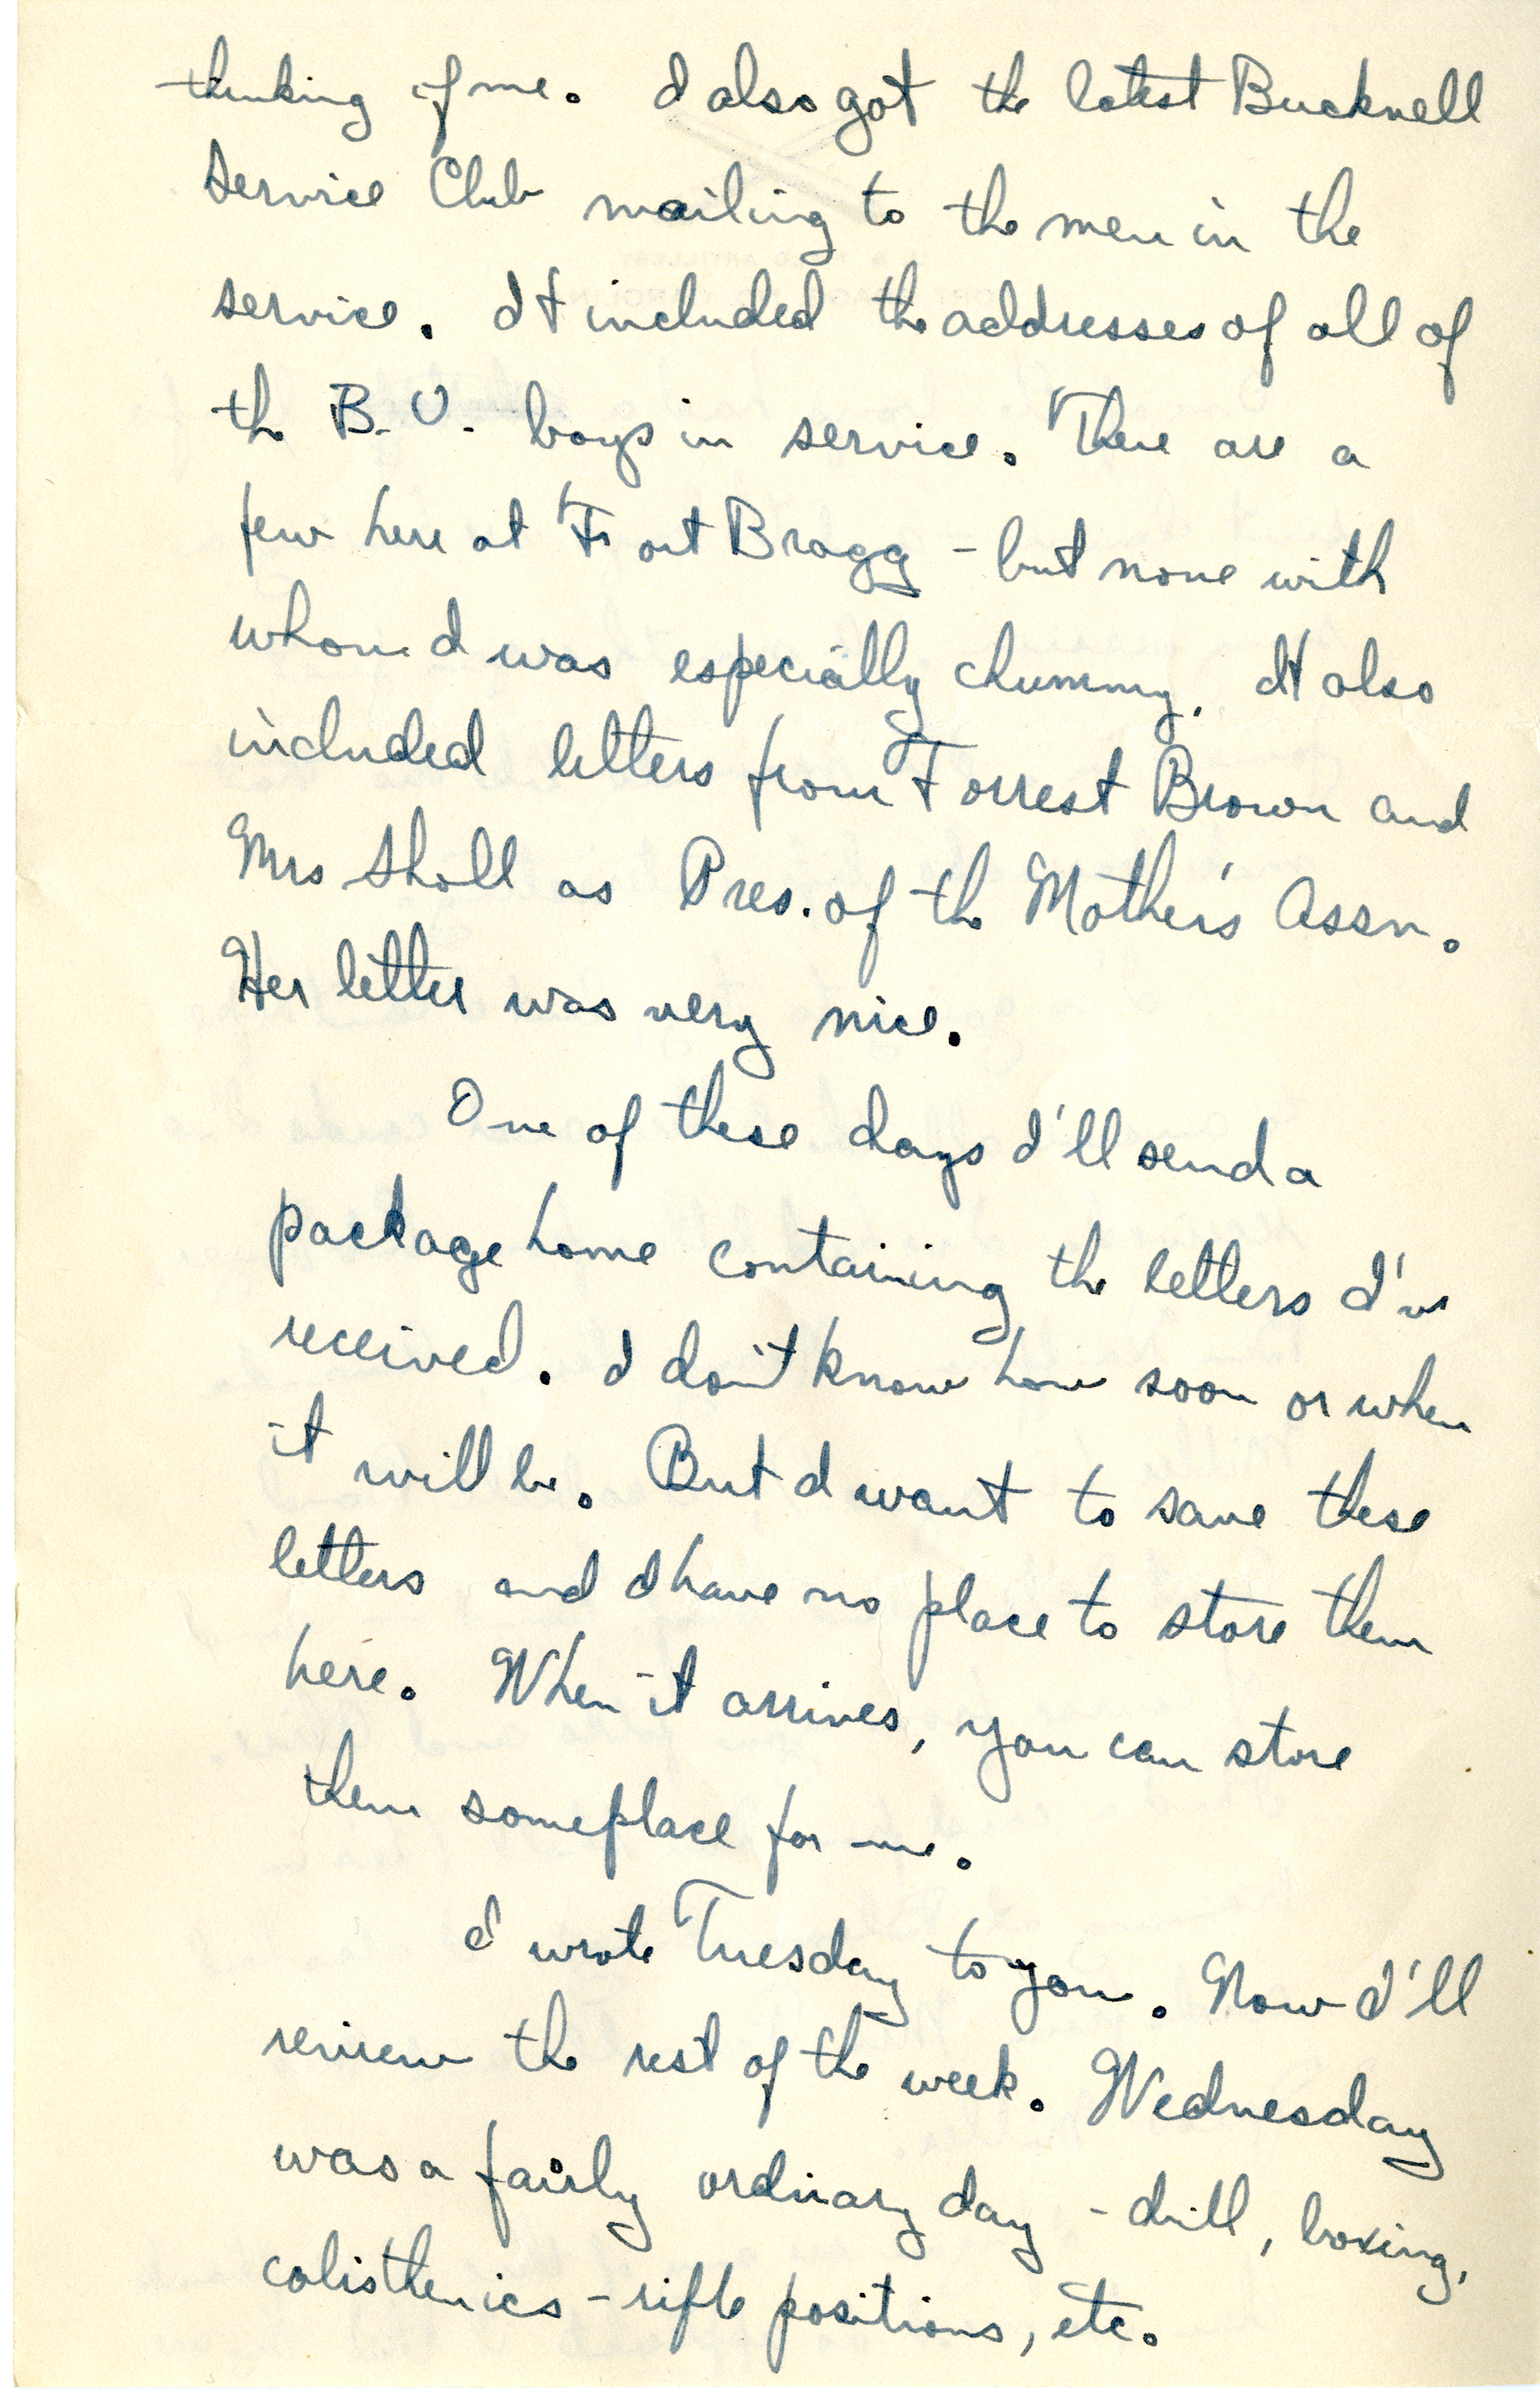 thinking of me. I also got the latest Bucknell
Service Club mailing to the men in the
service. It included the addresses of all of
the B.U. boys in service. There are a
few here at Fort Bragg - but none with
whom I was especially chummy. It also
included letters from Forrest Brown and
Mrs Sholl as Pres. of the Mother's Assn.
Her letter was very nice.
One of these days I'll send a
package home containing the letters I've
received. I don't know how soon or when
it will be. But I want to save these
letters and I have no place to store them
here. When it arrives, you can store
them someplace for me.
I wrote Tuesday to you. Now I'll
review the rest of the week. Wednesday
was a fairly ordinary day - drill, boxing,
calisthenics - rifle positions, etc.